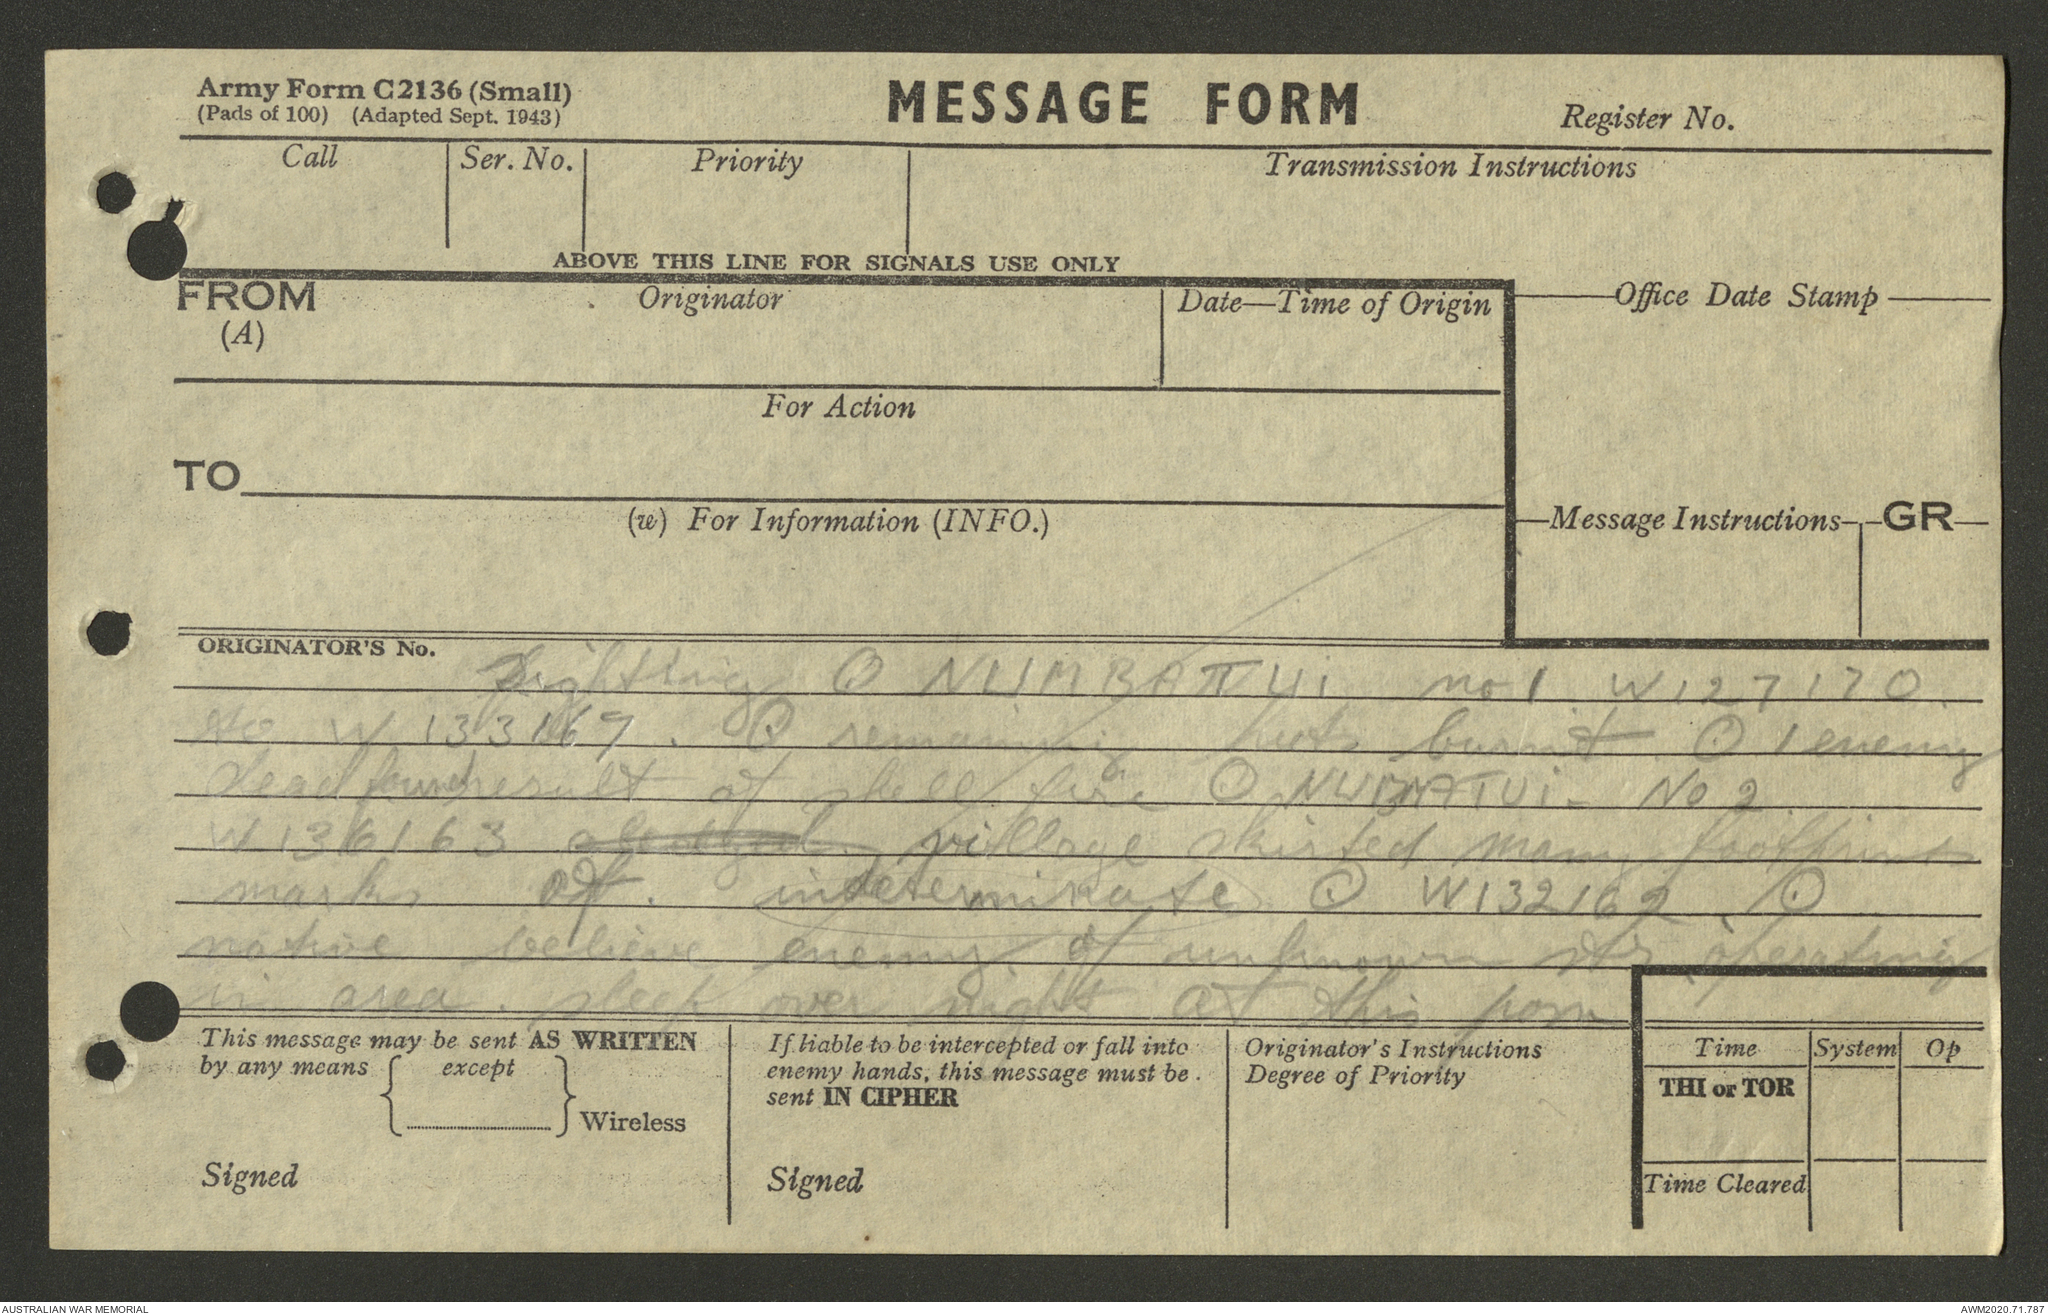 Army Form C2136 (Small)
(Pads of 100) (Adapted Sept. 1943)
MESSAGE FORM
Register No.
Call
Ser. No.
Priority
Transmission Instructions
ABOVE THIS LINE FOR SIGNALS USE ONLY
FROM
(A)
Originator
Date—Time of Origin
Office Date Stamp
For Action
TO
(w) For Information (INFO.)
Message Instructions
GR
ORIGINATOR'S No.
NUMBATTUI no 1 W127170
to W 133169. remaining huts burnt 1 enemy
dead found result of shell fire No 2
W136163 village skirted many footprint
marks of. indeterminate W132162.
native believe enemy of unknown str operating
in area. sleep over night at this posn
This message may be sent AS WRITTEN
by any means
except
Wireless
Signed
If liable to be intercepted or fall into
enemy hands, this message must be
sent IN CIPHER
Signed
Originator's Instructions
Degree of Priority
Time
System
Op
THI or TOR
Time Cleared
AUSTRALIAN WAR MEMORIAL
AWM2020.71.787